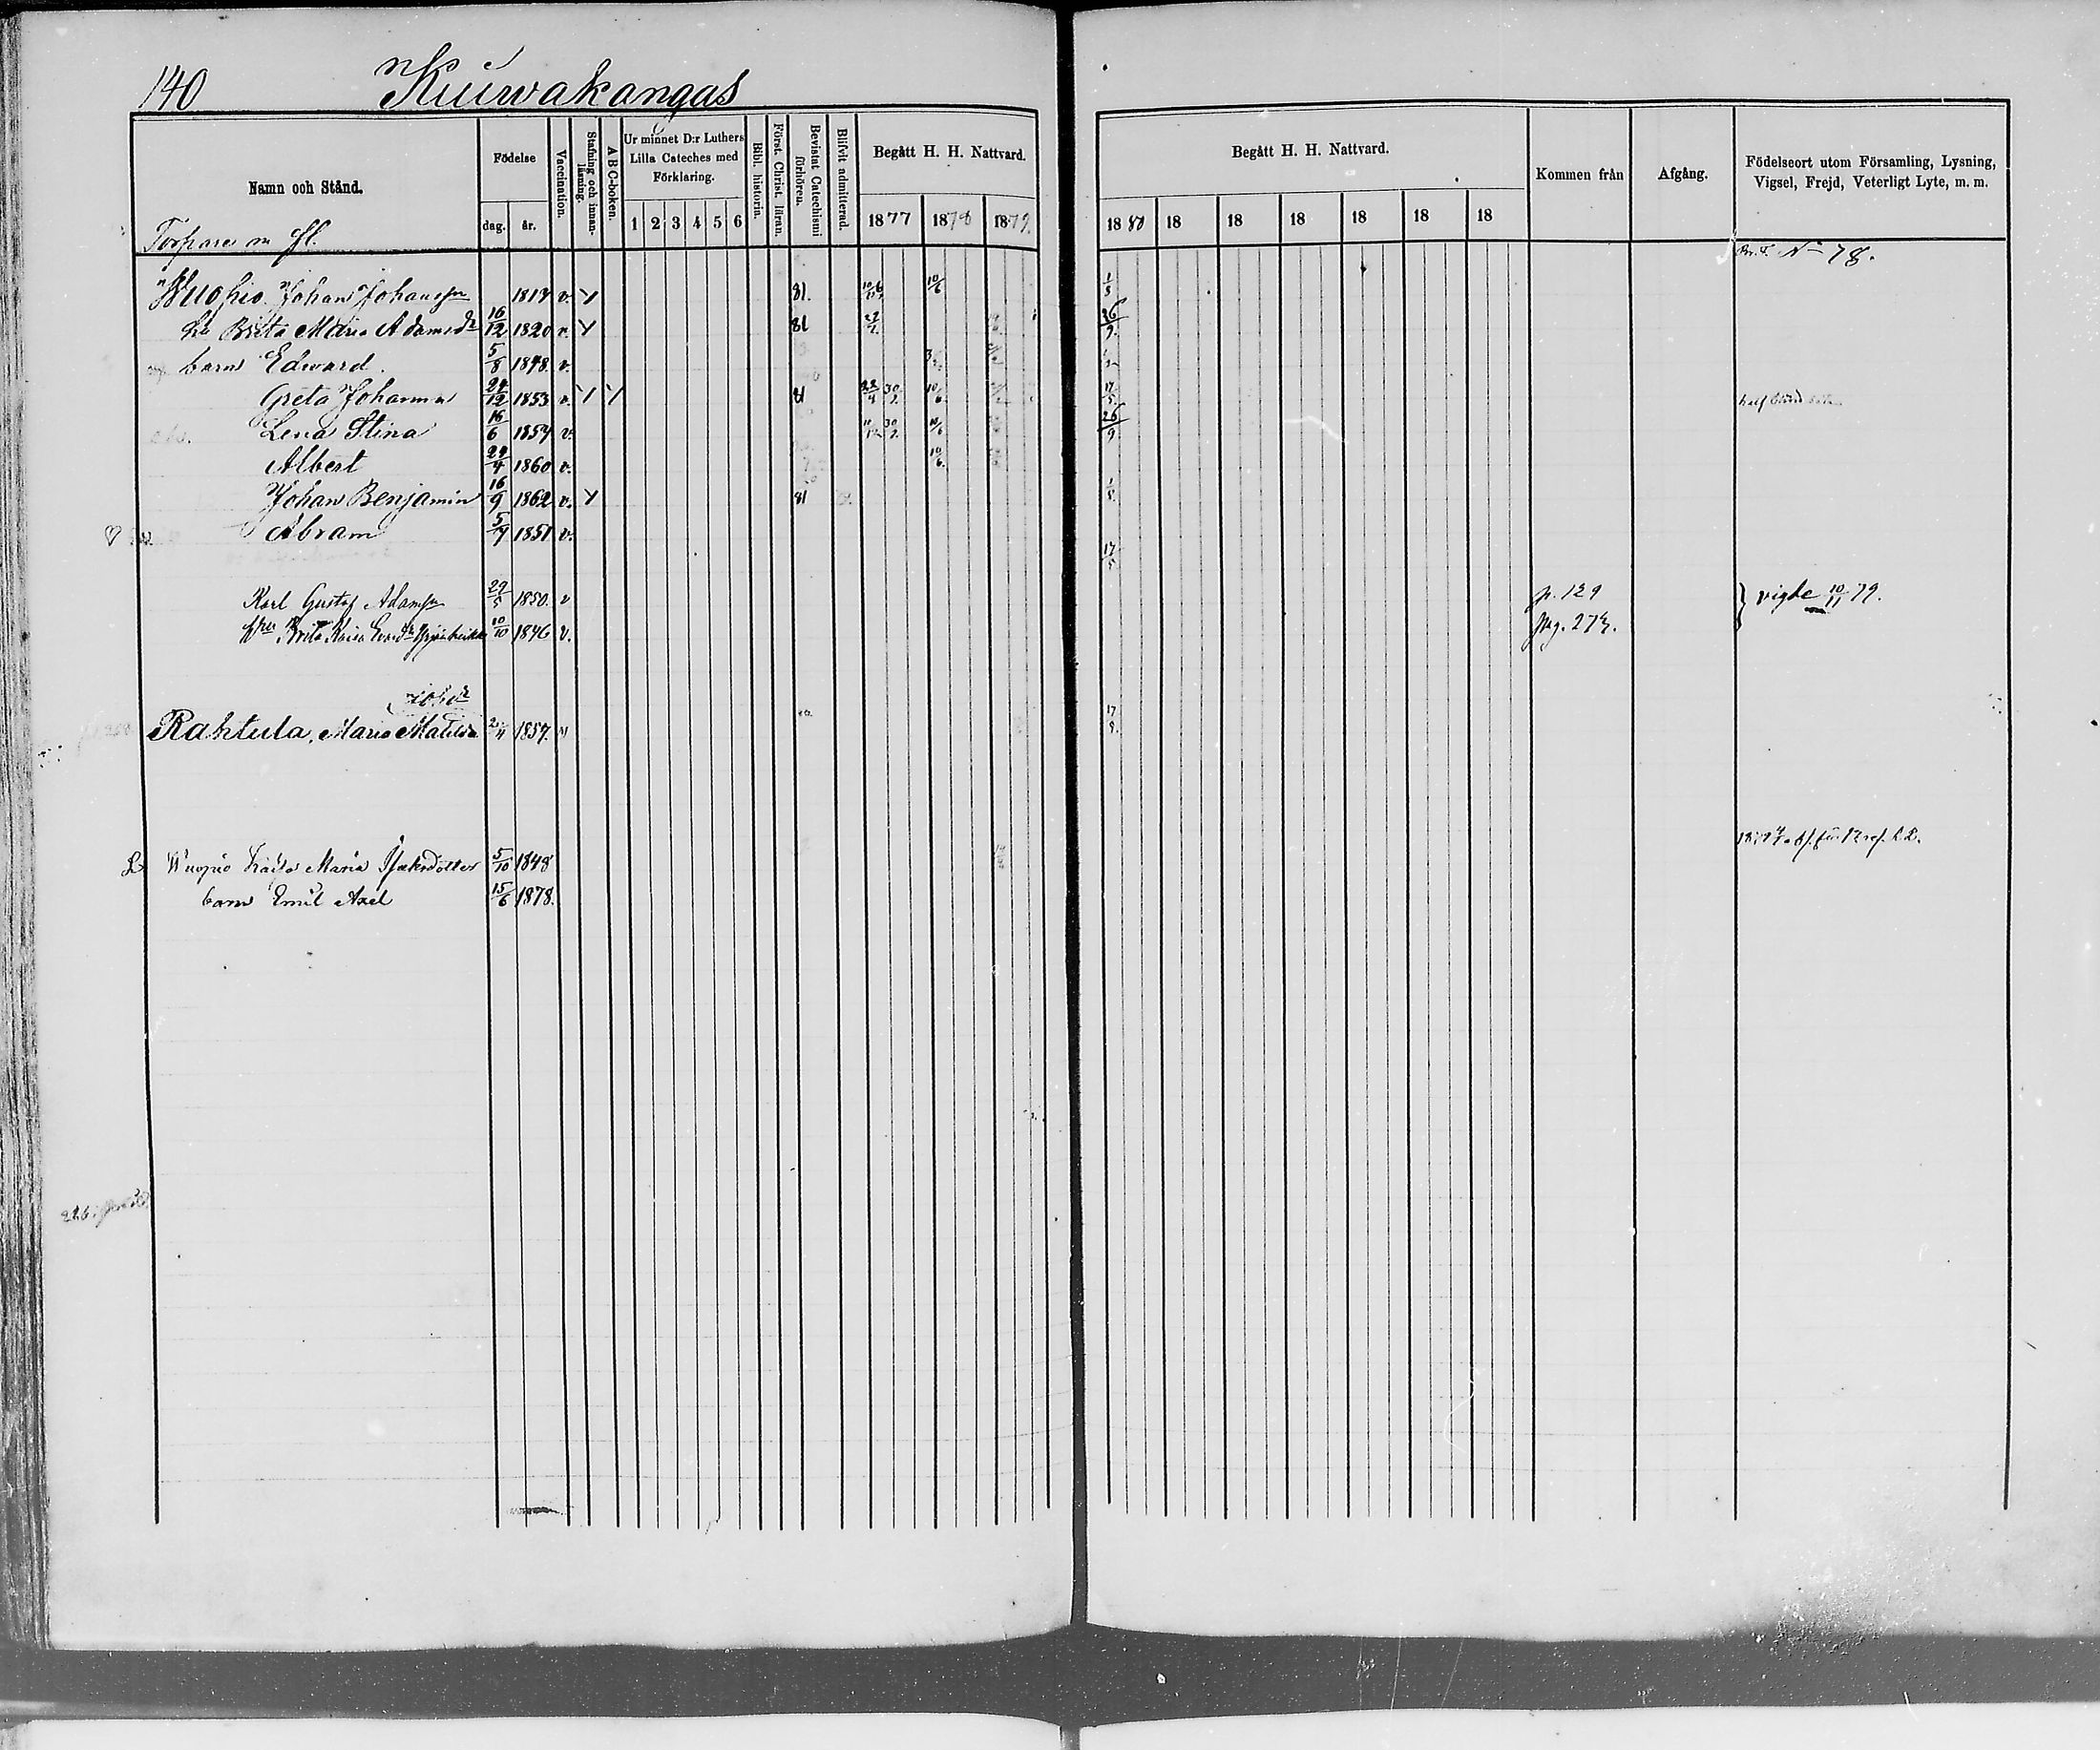 140 Kuiwakangas
Namn och Stånd.
Födelse
dag. år.
Vaccination.
Stafning och innanläsning.
A B C-boken.
Ur minnet D:r Luthers Lilla Cateches med Förklaring.
1 2 3 4 5 6
Bibl. historia.
Först. Christ. läran.
Bevistat Catechismi förhören.
Blifvit admitterad.
Begått H. H. Nattvard.
1877 1878 1879.
Begått H. H. Nattvard.
1880 18 18 18 18 18 18
Kommen från
Afgång.
Födelseort utom Församling, Lysning, Vigsel, Frejd, Veterligt Lyte, m. m.
Torpare m fl.
N 78.
Wuopio Johan Johansson 1817 v. 81. 10/6 1/8
hu Brita Maria Adamsdr 16/12 1820 v. 81 26/9.
barn Edward. 5/8 1848. v.
Greta Johanna 24/12 1853 v. 81 22/4 30/9. 10/6 17/5
Lena Stina 16/6 1857 v. 30/9. 10/6 26/9
Albert 29/4 1860 v. 10/6.
Johan Benjamin 16/9 1862 v. 81 1/8
Abram 5/7 1851 v. 17/5
Karl Gustaf Adamsson 29/5 1850. v p. 129 } vigde 10/11 79.
Brita Kaisa 10/10 1846 v. pag. 273.
Johdr
Rahtula, Maria Matilda 1857. v 17/8.
Wuopio Kajsa Maria Isaksdotter 5/10 1848
barn Emil Axel 15/6 1878.